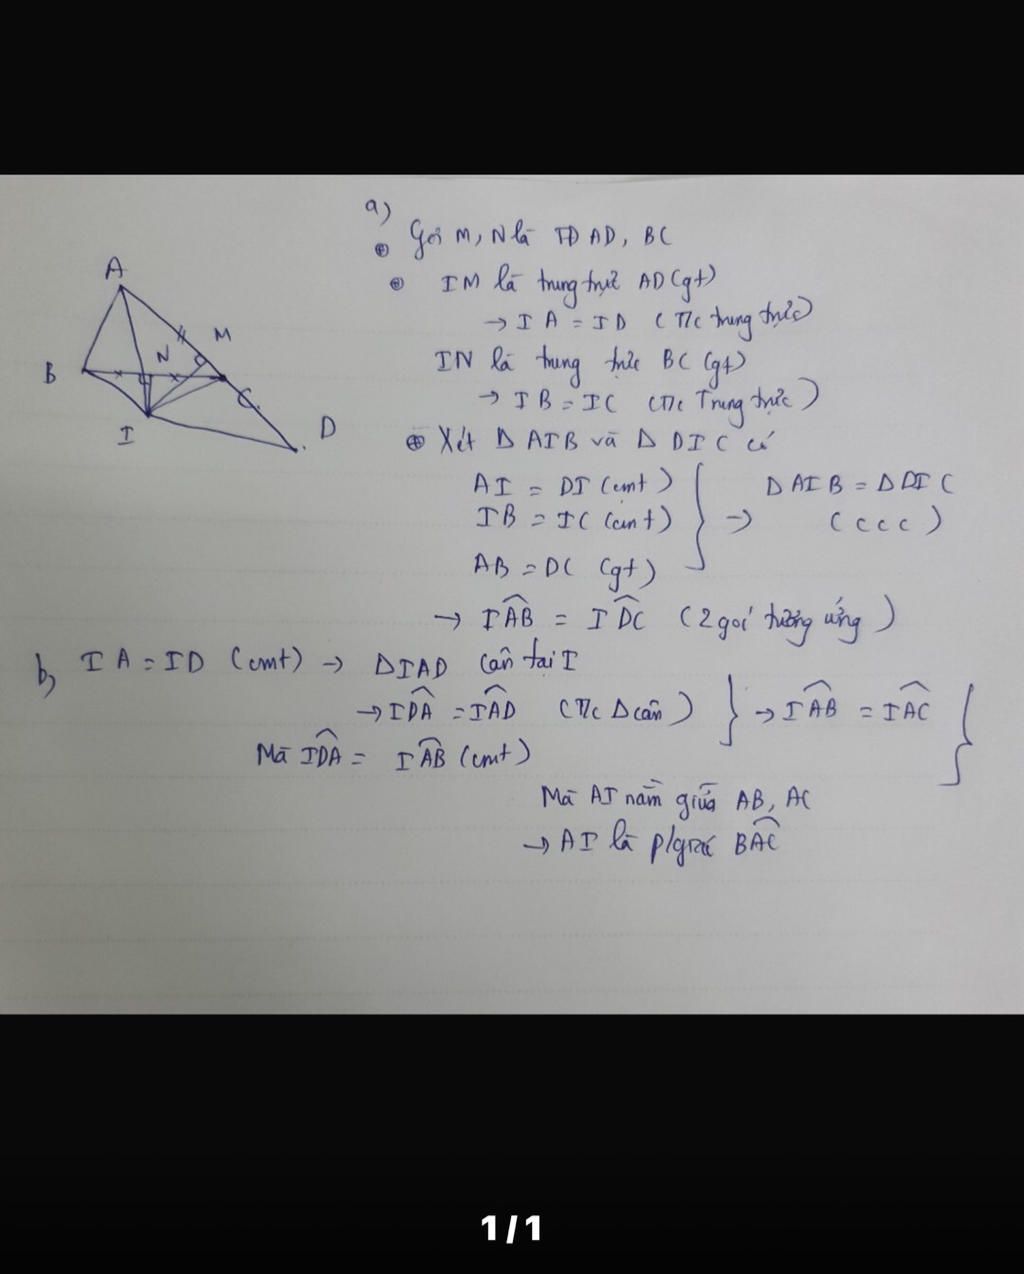 a)
⊕ Gọi M, N là TĐ AD, BC
⊕ IM là trung trực AD (gt)
→ IA = ID (T/c trung trực)
IN là trung trực BC (gt)
→ IB = IC (T/c Trung trực)
⊕ Xét Δ AIB và Δ DIC có
AI = DI (cmt)
IB = IC (cmt)
AB = DC (gt)
} → Δ AIB = Δ DIC
(ccc)
→ IÂB = ID̂C (2 góc tương ứng)
b, IA = ID (cmt) → ΔIAD cân tại I
→ ID̂A = IÂD (T/c Δ cân) } → IÂB = IÂC }
Mà ID̂A = IÂB (cmt)
Mà AI nằm giữa AB, AC
→ AI là p/giác BÂC
A
M
N
B
C
D
I
1/1